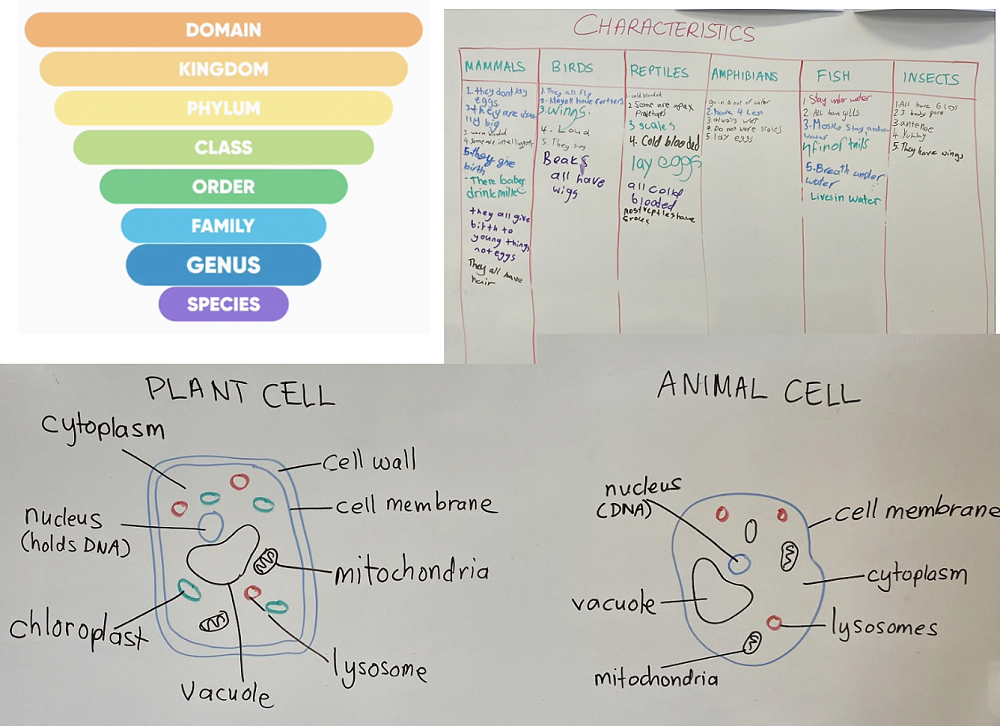 DOMAIN
KINGDOM
PHYLUM
CLASS
ORDER
FAMILY
GENUS
SPECIES
CHARACTERISTICS
MAMMALS
1. they dont lay
eggs
big
3. warm blooded
4. Some are intelligent
5. they give
birth
- There babes
drink milk
they all give
birth to
young things
not eggs
They all have
hair
BIRDS
1. They all fly
2. They all have fethers
3. wings.
4. Loud
5. They sing
Beaks
all have
wigs
REPTILES
1. cold blooded
2. Some are apex
3 scales
4. Cold blooded
lay eggs
all cold
bloded
most reptiles have
scales
AMPHIBIANS
1. go in & out of water
2. have 4 legs
3. always wet
4. Do not have scales
5. lay eggs
FISH
1. Stay under water
2. All have gills
3. Mostly stay under
water
4 fin or tails
5. Breath under
water
Lives in water
INSECTS
1. All have 6 legs
2. 3 body part
3 antenae
4. Yukky
5. They have wings
PLANT CELL
cytoplasm
cell wall
cell membrane
nucleus
(holds DNA)
mitochondria
chloroplast
lysosome
vacuole
ANIMAL CELL
nucleus
(DNA)
cell membrane
cytoplasm
vacuole
lysosomes
mitochondria